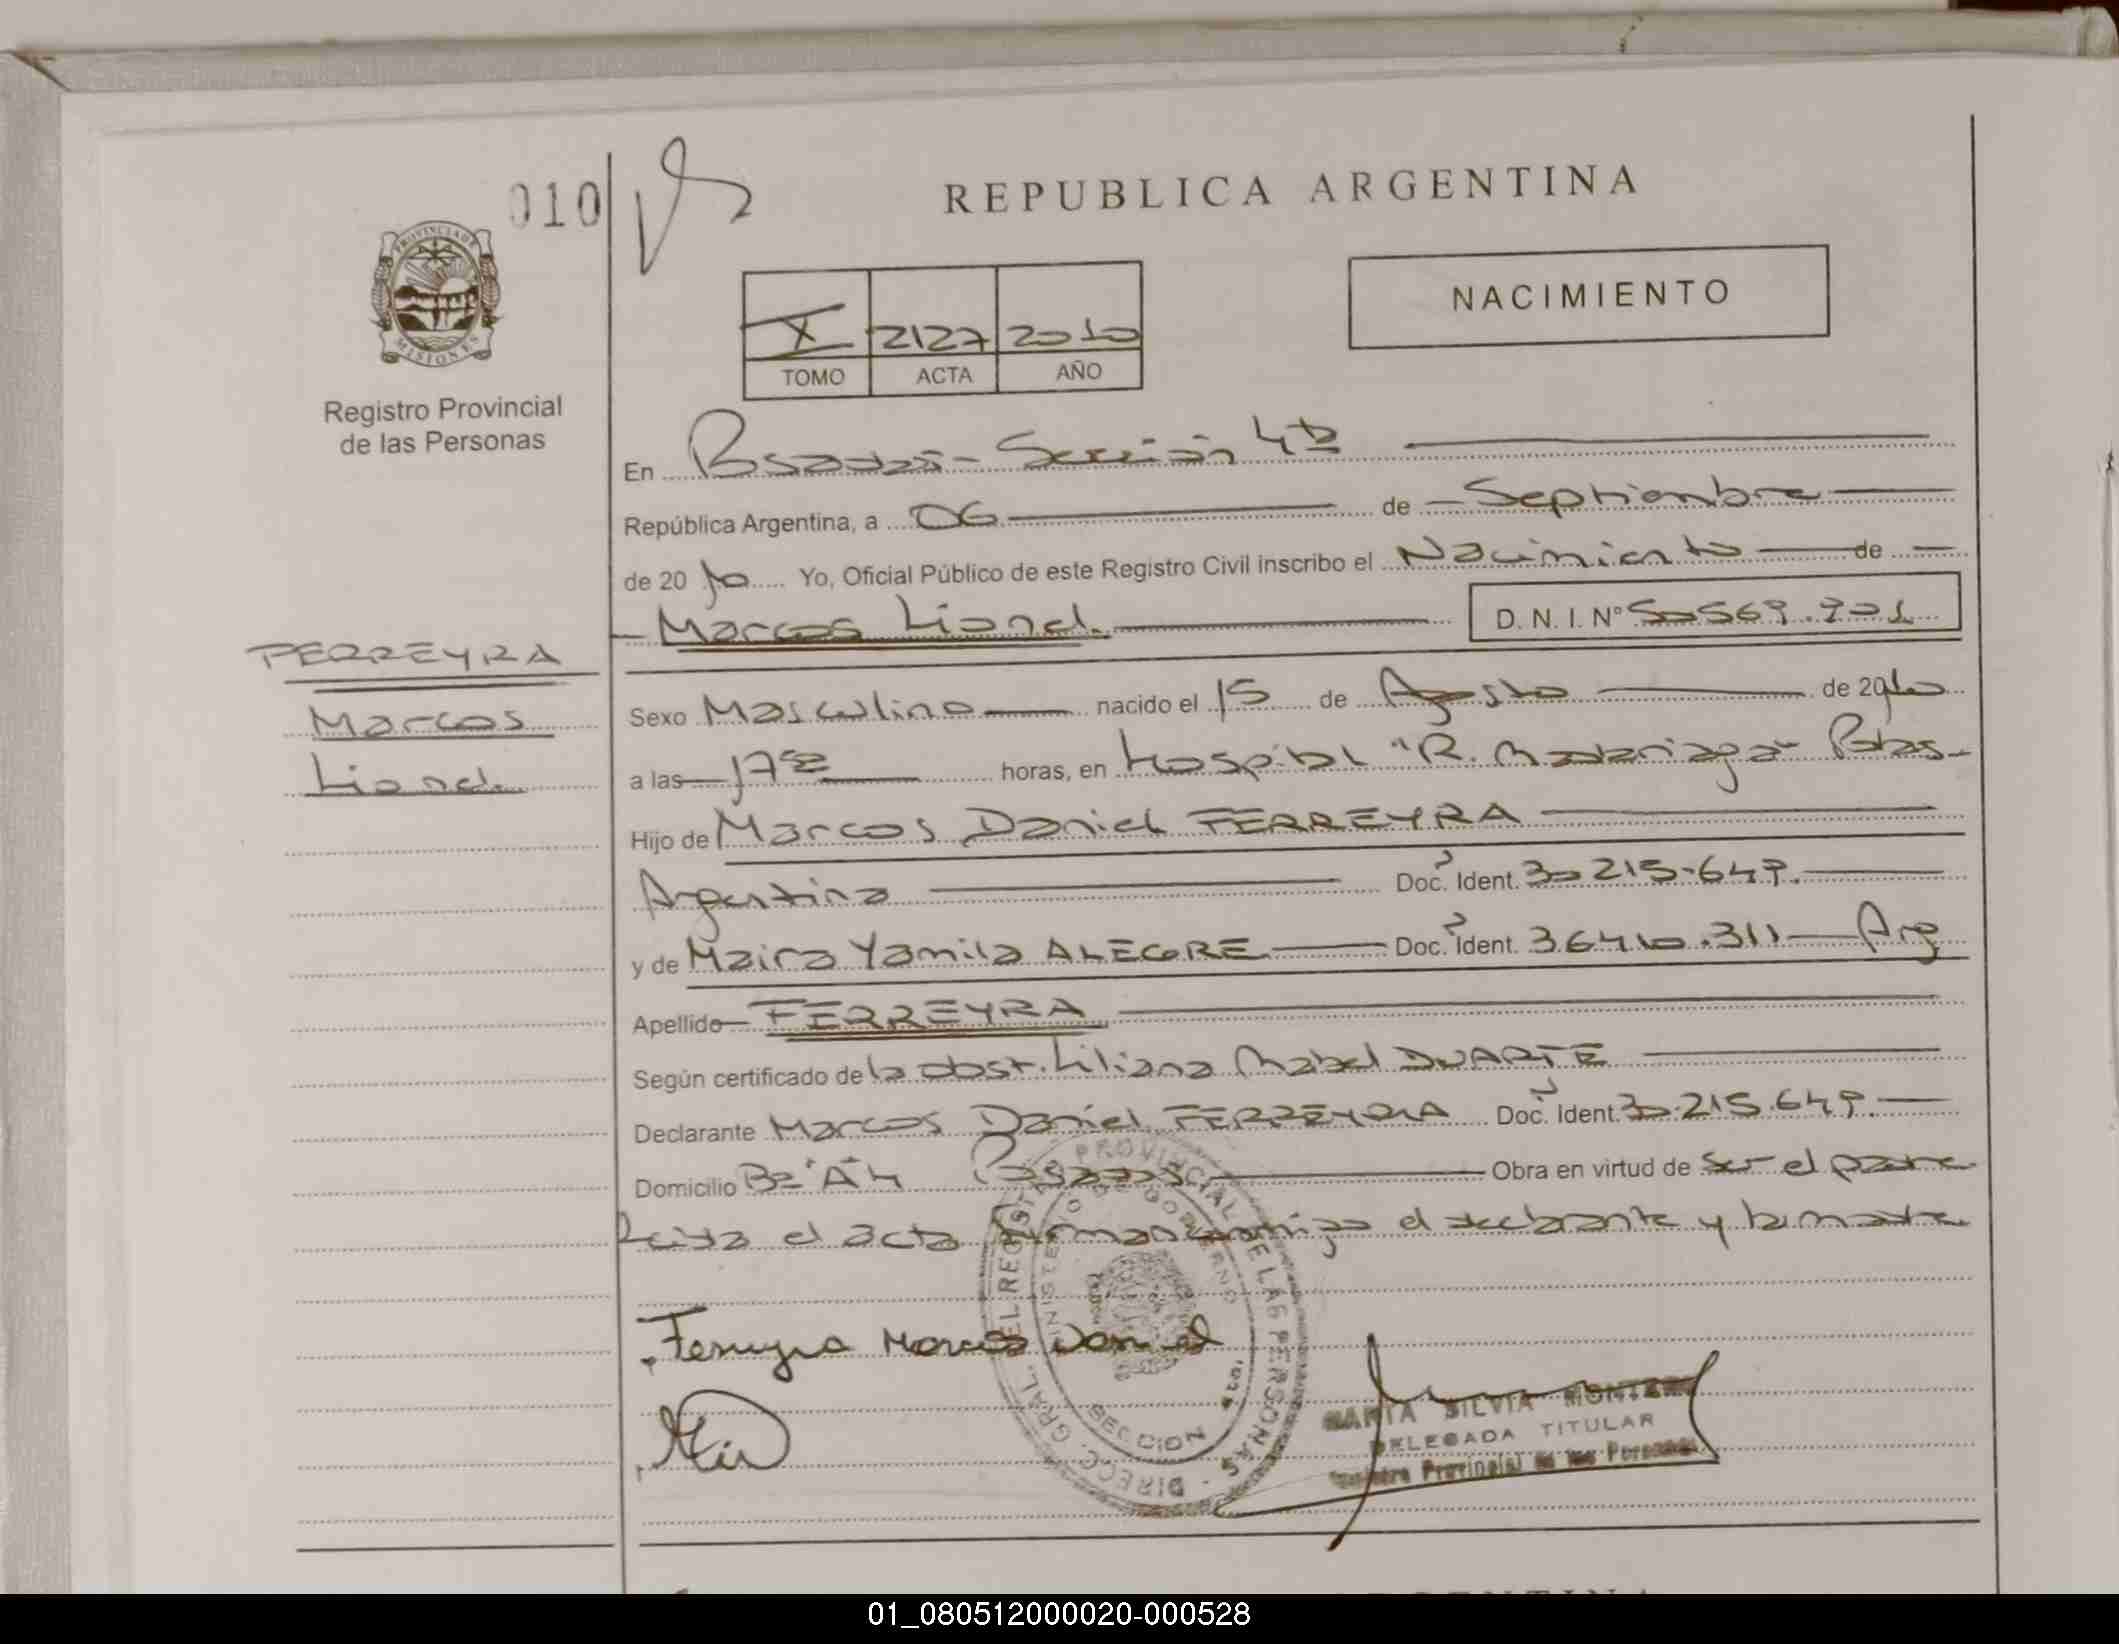 010
REPUBLICA ARGENTINA
PROVINCIA DE
MISIONES
Registro Provincial
de las Personas
NACIMIENTO
X 2127 2010
TOMO ACTA AÑO
En Posadas - Sección 4ta
República Argentina, a 06 de Septiembre
de 20 10 Yo, Oficial Público de este Registro Civil inscribo el Nacimiento de
Marcos Lionel. D. N. I. Nº 50569.901
FERREYRA
Marcos
Lionel.
Sexo Masculino nacido el 15 de Agosto de 2010
a las 17 horas, en Hospital "R. Madariaga" Pdas-
Hijo de Marcos Daniel FERREYRA
Argentina Doc. Ident. 30215.649.
y de Maira Yamila ALEGRE Doc. Ident. 36410.311 Arg
Apellido FERREYRA
Según certificado de la obst. Liliana Mabel DUARTE
Declarante Marcos Daniel FERREYRA Doc. Ident. 30.215.649.
Domicilio Bº "A4 Posadas Obra en virtud de ser el padre
Leída el acta firman conmigo el declarante y la madre
Ferreyra Marcos Daniel
DIRECC. GRAL. DEL REGISTRO PROVINCIAL DE LAS PERSONAS -
MINISTERIO DE GOBIERNO
SECCION 4ta.
MARIA SILVIA MONTERO
DELEGADA TITULAR
Registro Provincial de las Personas
01_080512000020-000528